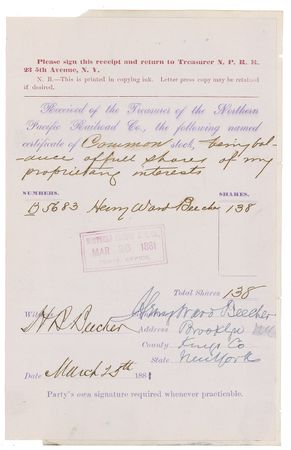 Please sign this receipt and return to Treasurer N. P. R. R.
23 5th Avenue, N. Y.
N. B.—This is printed in copying ink. Letter press copy may be retained
if desired.
Received of the Treasurer of the Northern
Pacific Railroad Co., the following named
certificate of Common stock, being bal-
ance of full shares of my
proprietary interests
NUMBERS. SHARES.
B 5683 Henry Ward Beecher 138
MAR 26 1881
Total Shares 138
Henry Ward Beecher
H B Beecher
Address Brooklyn
County Kings Co
State New York
Date March 25th 1881
Party's own signature required whenever practicable.